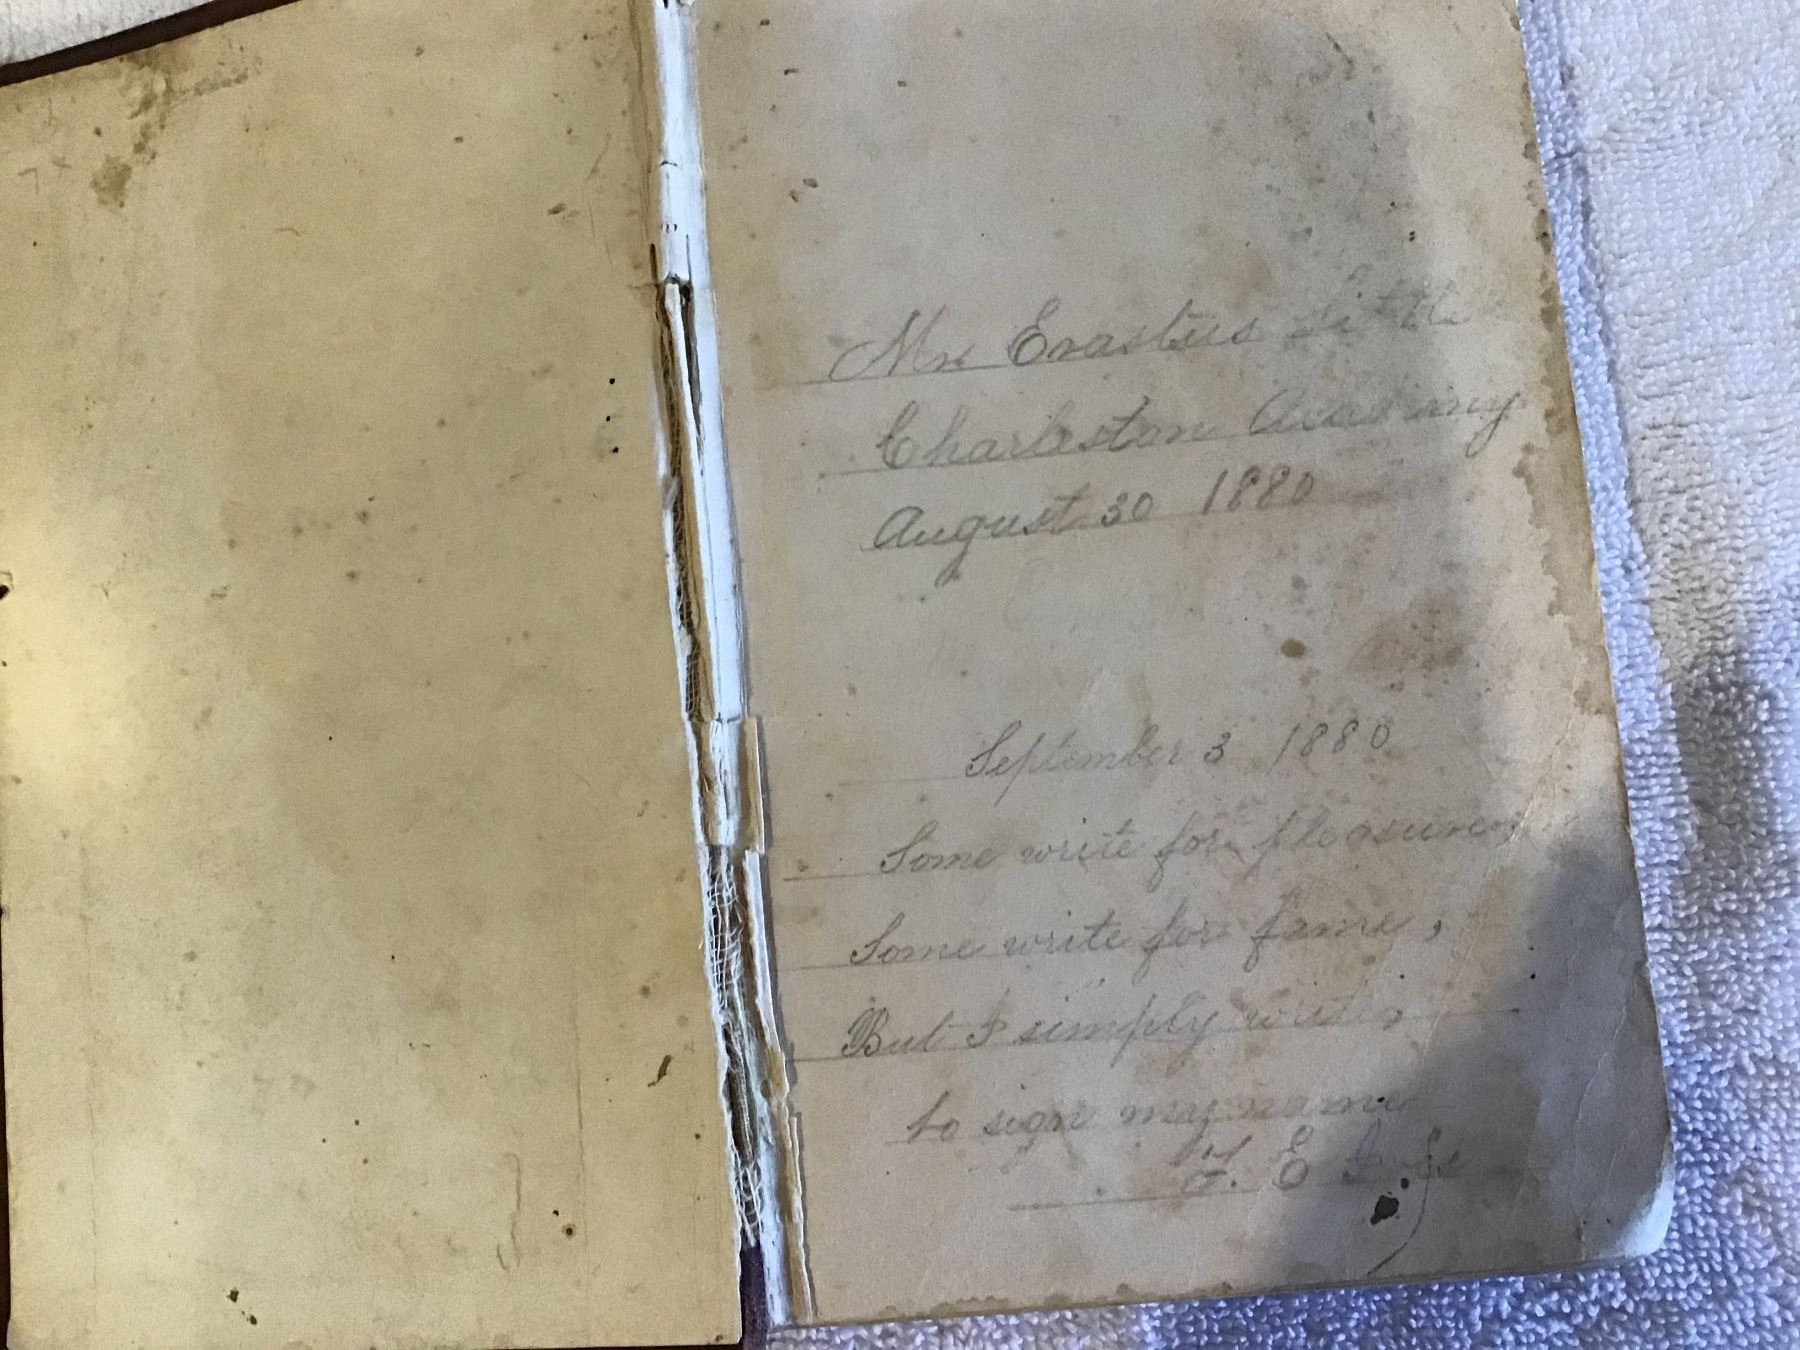 Mr Erastus Little
Charleston Academy
August 30 1880
September 3 1880
Some write for pleasure,
Some write for fame,
But I simply write,
to sign my name
F. E.